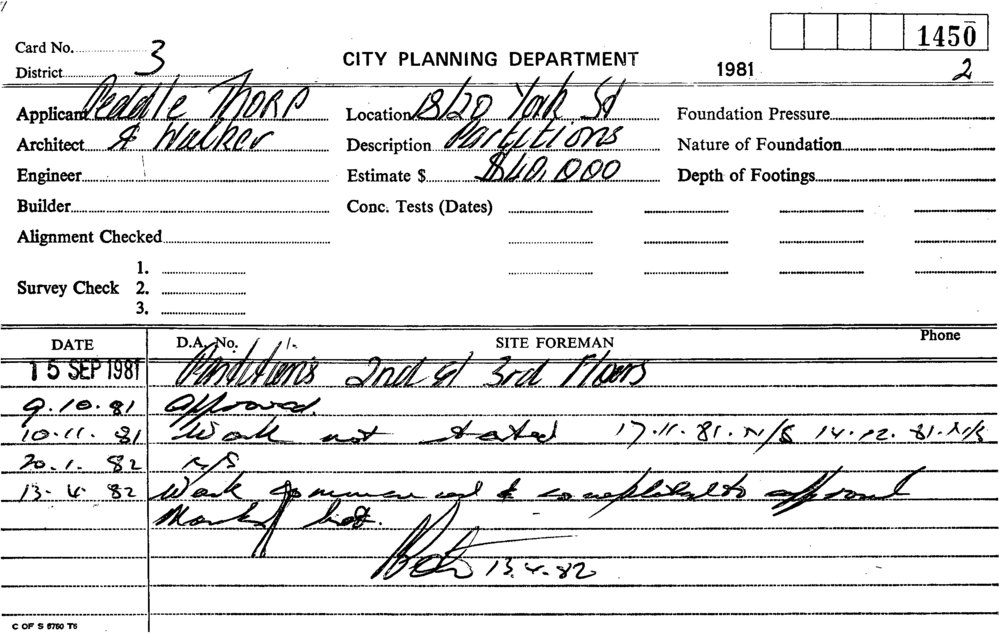 1450
Card No. 3
CITY PLANNING DEPARTMENT
District
1981 2
Applicant Peddle Thorp Location 18/20 York St Foundation Pressure
Architect & Walker Description Partitions Nature of Foundation
Engineer Estimate $ $40,000 Depth of Footings
Builder Conc. Tests (Dates)
Alignment Checked
1.
Survey Check 2.
3.
DATE D.A. No. SITE FOREMAN Phone
15 SEP 1981 Partitions 2nd & 3rd Floors
9.10.81 Approved.
10.11.81 Work not started 17.11.81.N/S 14.12.81.N/S
20.1.82 N/S
13.4.82 Work commenced & completed to approval
13.4.82
C OF S 6760 T6